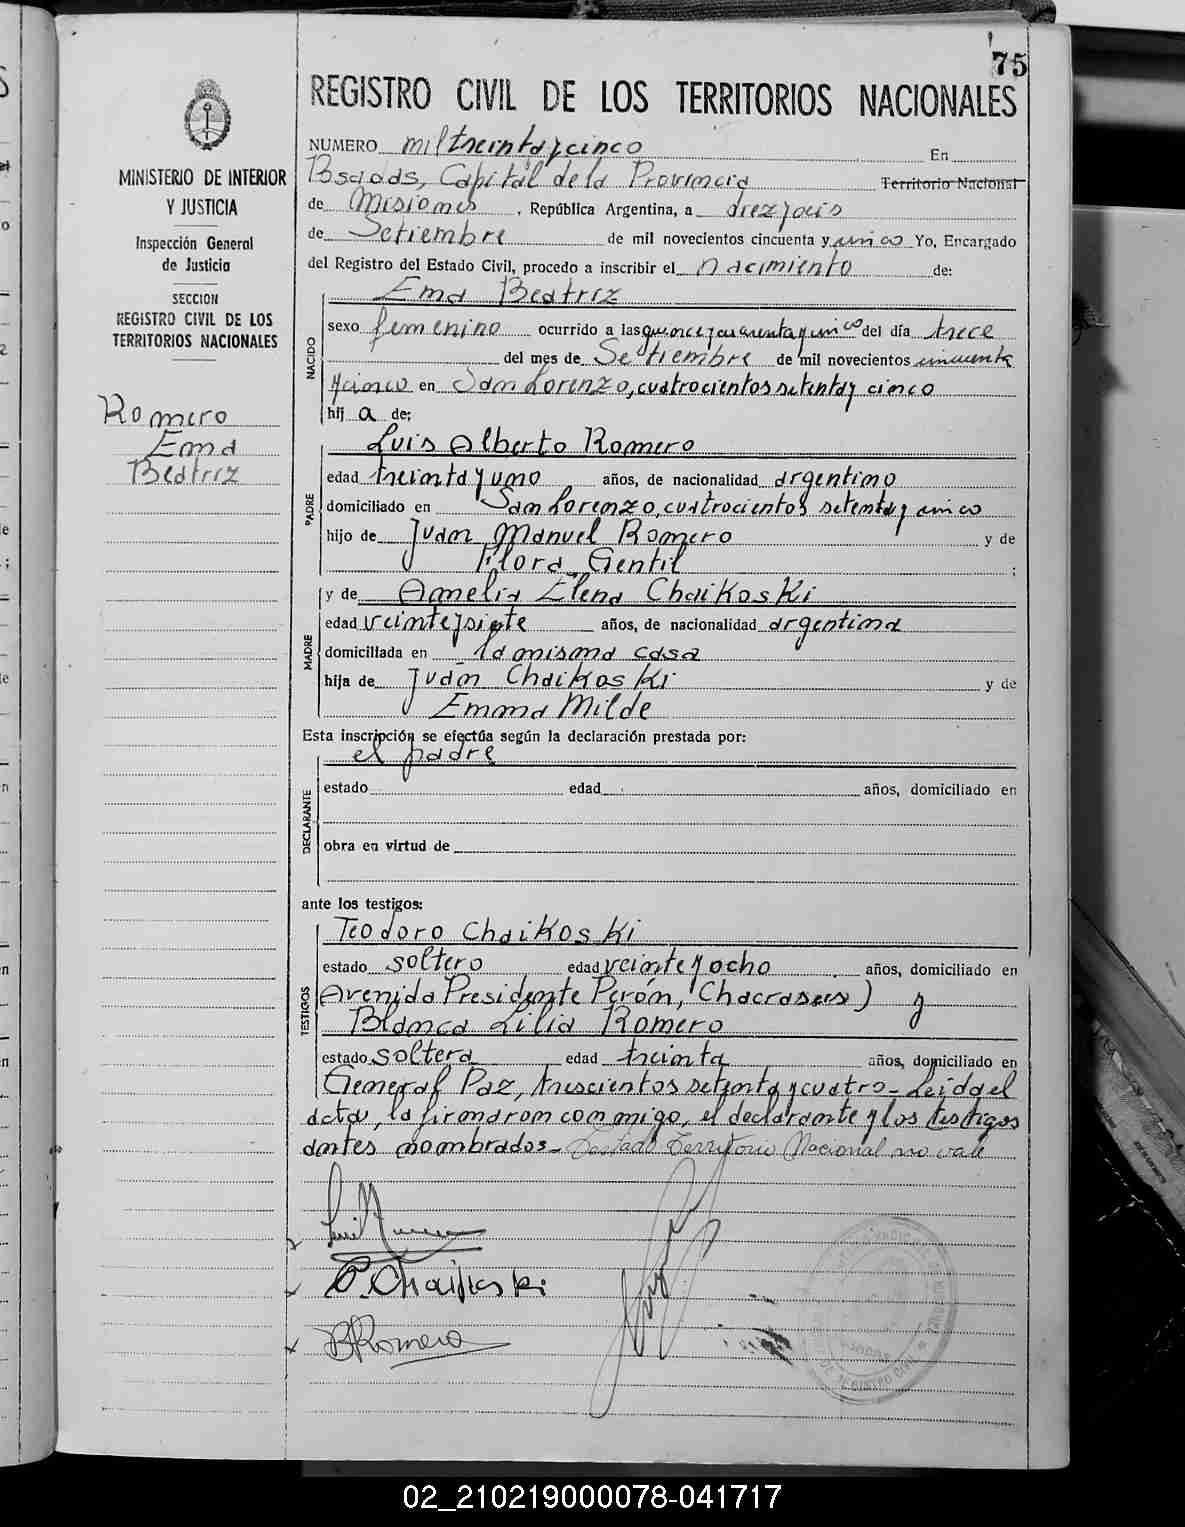 75
REGISTRO CIVIL DE LOS TERRITORIOS NACIONALES
NUMERO mil treinta y cinco En
Posadas, Capital de la Provincia Territorio Nacional
de Misiones, República Argentina, a diez y seis
de Setiembre de mil novecientos cincuenta y cinco Yo, Encargado
del Registro del Estado Civil, procedo a inscribir el nacimiento de:
MINISTERIO DE INTERIOR
Y JUSTICIA
Inspección General
de Justicia
SECCION
REGISTRO CIVIL DE LOS
TERRITORIOS NACIONALES
Romero
Ema
Beatriz
NACIDO
Ema Beatriz
sexo femenino ocurrido a las quince y cuarenta y cinco del día trece
del mes de Setiembre de mil novecientos cincuenta
y cinco en San Lorenzo, cuatrocientos setenta y cinco
hij a de;
PADRE
Luis Alberto Romero
edad treinta y uno años, de nacionalidad argentino
domiciliado en San Lorenzo, cuatrocientos setenta y cinco
hijo de Juan Manuel Romero y de
Flora Gentil ;
MADRE
y de Amelia Elena Chaikoski
edad veinte y siete años, de nacionalidad argentina
domiciliada en la misma casa
hija de Juan Chaikoski y de
Emma Milde
Esta inscripción se efectúa según la declaración prestada por:
el padre
DECLARANTE
estado edad años, domiciliado en
obra en virtud de
ante los testigos:
TESTIGOS
Teodoro Chaikoski
estado soltero edad veinte y ocho años, domiciliado en
Avenida Presidente Perón, Chacra seis) y
Blanca Lilia Romero
estado soltera edad treinta años, domiciliado en
General Paz, trescientos setenta y cuatro- Leída el
acta, la firmaron conmigo, el declarante y los testigos
antes nombrados- Testado Territorio Nacional no vale
T. Chaikoski
B Romero
02_210219000078-041717